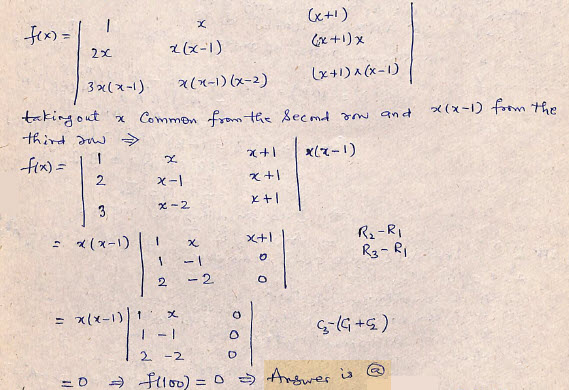 f(x) = | 1 x (x+1) |
| 2x x(x-1) (x+1)x |
| 3x(x-1) x(x-1)(x-2) (x+1)x(x-1) |
taking out x Common from the Second row and x(x-1) from the
third row ⇒
f(x) = | 1 x x+1 | x(x-1)
| 2 x-1 x+1 |
| 3 x-2 x+1 |
= x(x-1) | 1 x x+1 | R₂-R₁
| 1 -1 0 | R₃-R₁
| 2 -2 0 |
= x(x-1) | 1 x 0 | C₃-(C₁+C₂)
| 1 -1 0 |
| 2 -2 0 |
= 0 ⇒ f(100) = 0 ⇒ Answer is (a)